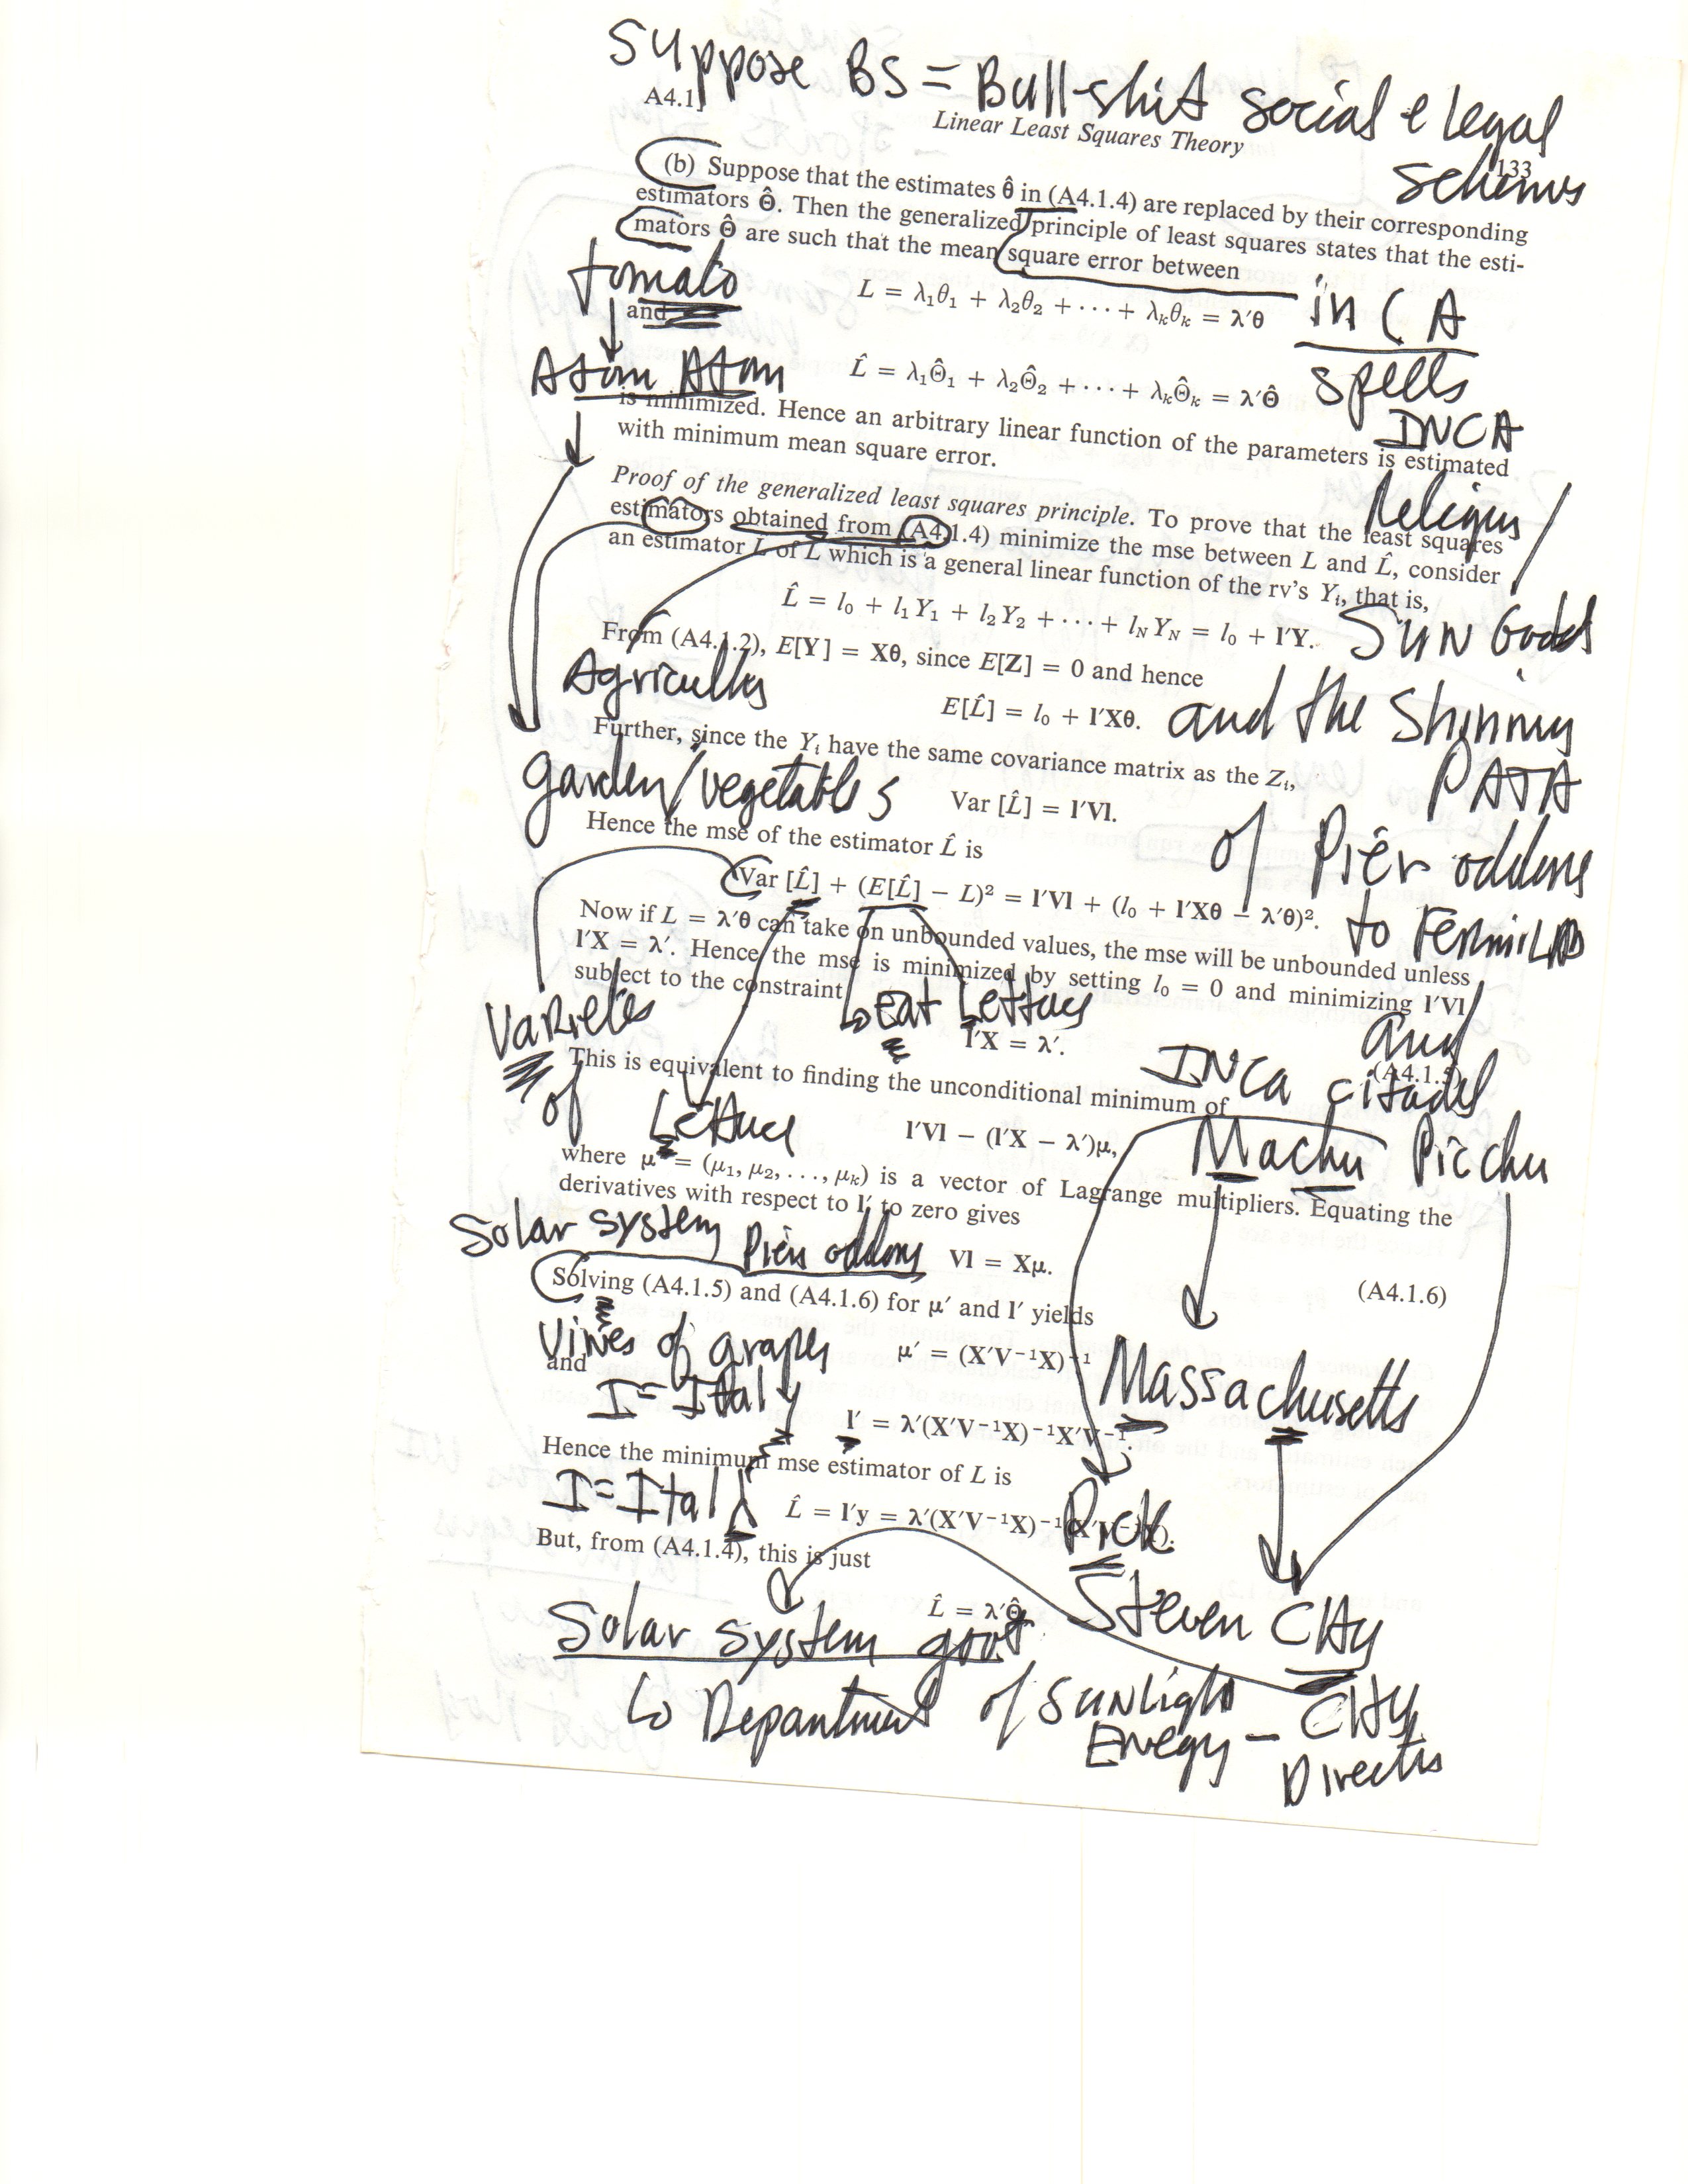 Suppose BS = Bull-shit social e legal
schemes
A4.1]
Linear Least Squares Theory
133
(b) Suppose that the estimates θ̂ in (A4.1.4) are replaced by their corresponding
estimators Θ̂. Then the generalized principle of least squares states that the esti-
mators Θ̂ are such that the mean square error between
tomato
L = λ₁θ₁ + λ₂θ₂ + · · · + λₖθₖ = λ′θ
in CA
and
Atom Atom
L̂ = λ₁Θ̂₁ + λ₂Θ̂₂ + · · · + λₖΘ̂ₖ = λ′Θ̂
spells
INCA
is minimized. Hence an arbitrary linear function of the parameters is estimated
with minimum mean square error.
Religius
Proof of the generalized least squares principle. To prove that the least squares
estimators obtained from (A4.1.4) minimize the mse between L and L̂, consider
an estimator L̂ of L which is a general linear function of the rv's Yᵢ, that is,
L̂ = l₀ + l₁Y₁ + l₂Y₂ + · · · + l_N Y_N = l₀ + l′Y.
SUN Godds
From (A4.1.2), E[Y] = Xθ, since E[Z] = 0 and hence
Agricultry
E[L̂] = l₀ + l′Xθ.
and the Shinny
PATA
Further, since the Yᵢ have the same covariance matrix as the Zᵢ,
garden/vegetables
Var [L̂] = l′Vl.
of Pier oddons
Hence the mse of the estimator L̂ is
Var [L̂] + (E[L̂] − L)² = l′Vl + (l₀ + l′Xθ − λ′θ)².
to FermiLAB
Now if L = λ′θ can take on unbounded values, the mse will be unbounded unless
l′X = λ′. Hence the mse is minimized by setting l₀ = 0 and minimizing l′Vl
subject to the constraint
Varietes
Eat Lettucs
and
l′X = λ′.
(A4.1.5)
INCa citadel
This is equivalent to finding the unconditional minimum of
of Lettuce
l′Vl − (l′X − λ′)μ,
Machu Picchu
where μ′ = (μ₁, μ₂, . . ., μₖ) is a vector of Lagrange multipliers. Equating the
derivatives with respect to l′ to zero gives
Solar system Pier oddons
Vl = Xμ.
(A4.1.6)
Solving (A4.1.5) and (A4.1.6) for μ′ and l′ yields
Vines of grapes
μ′ = (X′V⁻¹X)⁻¹
Massachusetts
and
I = Italy
l′ = λ′(X′V⁻¹X)⁻¹X′V⁻¹.
Hence the minimum mse estimator of L is
I = Ital λ
L̂ = l′y = λ′(X′V⁻¹X)⁻¹(X′V⁻¹y).
Pick
But, from (A4.1.4), this is just
L̂ = λ′Θ̂
Steven CHy
Solar system govt
Department of SUNLight
Enegy – CHy
Directs